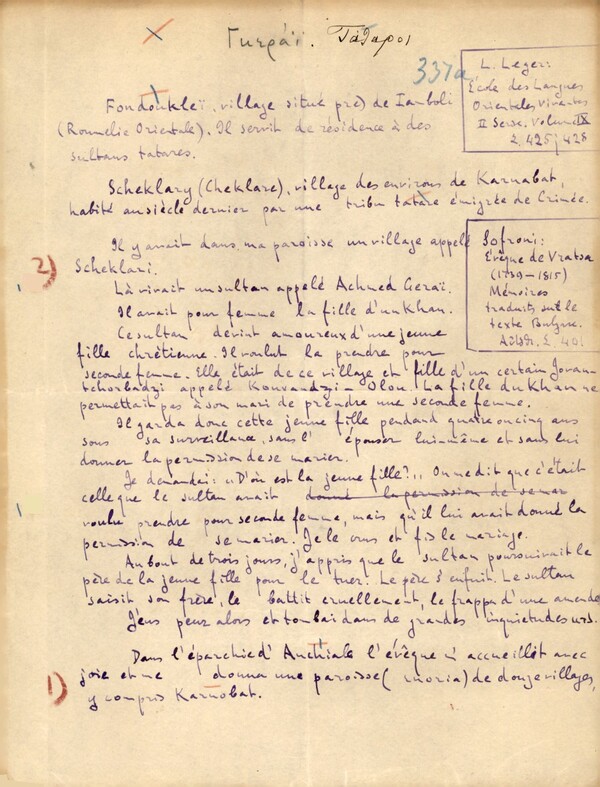 Γιυράϊ. Τάταροι
337a
L. Leger:
École des Langues
Orientales Vivantes
II Serie. Volume IX
Σ. 425 j 428
Fondoukleï, village situé près de Iamboli
(Roumelie Orientale). Il servit de résidence à des
sultans tatares.
Scheklary (Cheklare), village des environs de Karnabat,
habité au siècle dernier par une tribu tatare émigrée de Crimée.
Sofroni:
Évêque de Vratsa
(1739-1815)
Mémoires
traduits sur le
texte Bulgare.
Σ. 401
2) Il y avait dans ma paroisse un village appelé
Scheklari.
Là vivait un sultan appelé Achmed Geraï.
Il avait pour femme la fille d'un Khan.
Ce sultan devint amoureux d'une jeune
fille chrétienne. Il voulut la prendre pour
seconde femme. Elle était de ce village et fille d'un certain Jovan-
tchorbadzi appelé Kouvandzi-Olou. La fille du Khan ne
permettait pas à son mari de prendre une seconde femme.
Il garda donc cette jeune fille pendard quatre ou cinq ans
sous sa surveillance, sans l' épouser lui-même et sans lui
donner la permission de se marier.
Je demandai: "D'où est la jeune fille?" On me dit que c'était
celle que le sultan avait donné la permission de se mar
voulu prendre pour seconde femme, mais qu'il lui avait donné la
permission de se marier. Je le crus et fis le mariage.
Au bout de trois jours, j'appris que le sultan poursuivait le
père de la jeune fille pour le tuer. Le père s'enfuit. Le sultan
saisit son frère, le battit cruellement, le frappa d'une amende
J'eus peur alors et tombai dans de grandes inquietudes
1) Dans l'éparchie d'Anchiale l'évêque m'accueillit avec
joie et me donna une paroisse (moria) de douze villages,
y compris Karnobat.